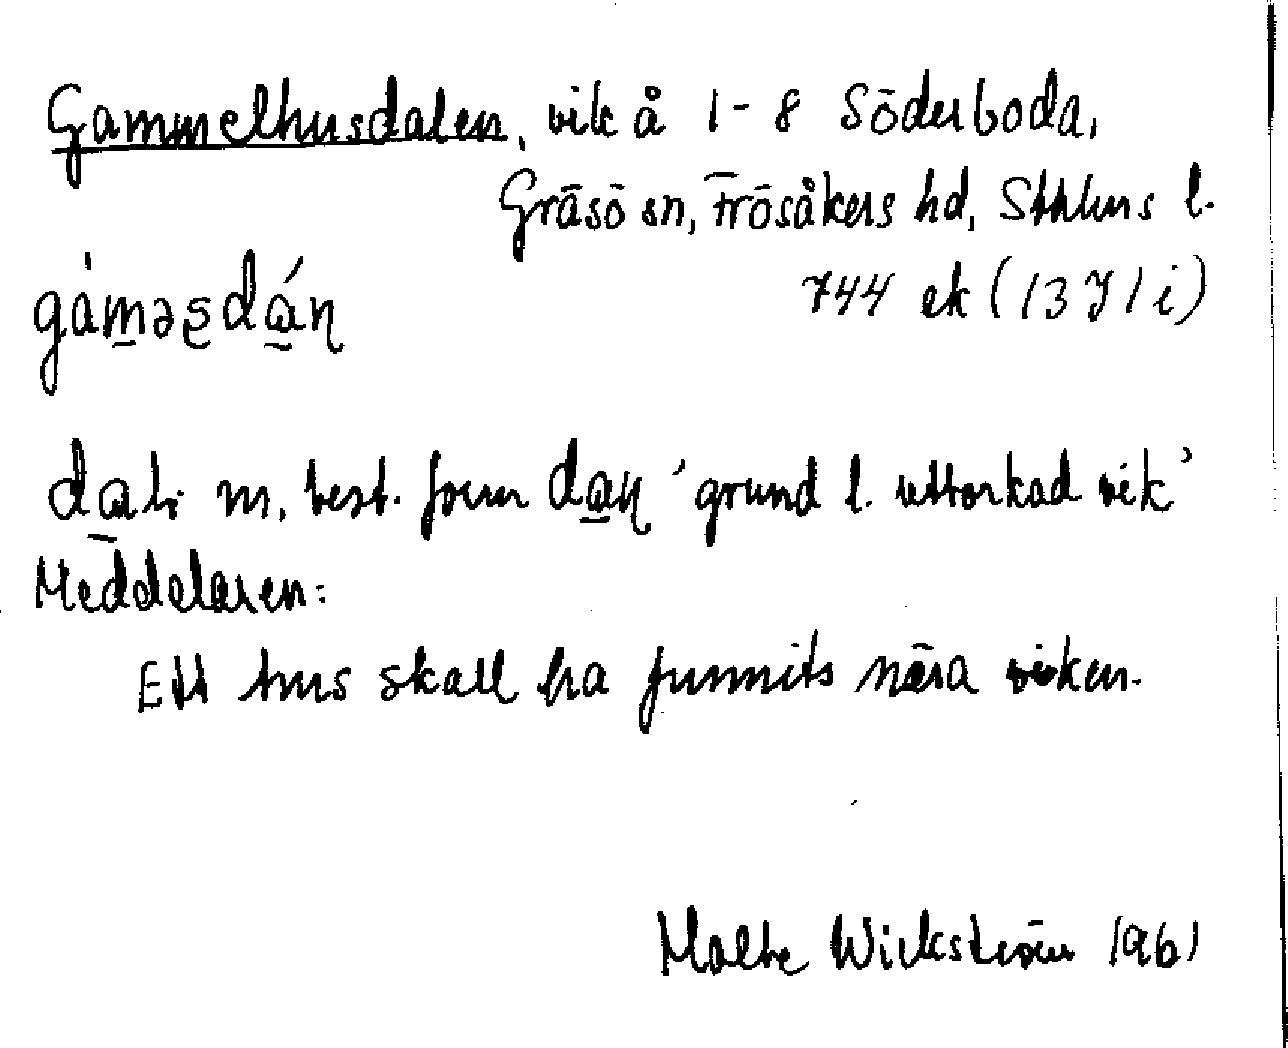 Gammelhusdalen, vik å 1-8 Söderboda,
Gräsö sn, Frösåkers hd, Sthlms l.
744 ek (13 I 1 i)
gáməsdáṇ
m, best. form daṇ 'grund l. uttorkad vik'
Meddelaren:
Ett hus skall ha funnits nära viken.
Malte Wickström 1961